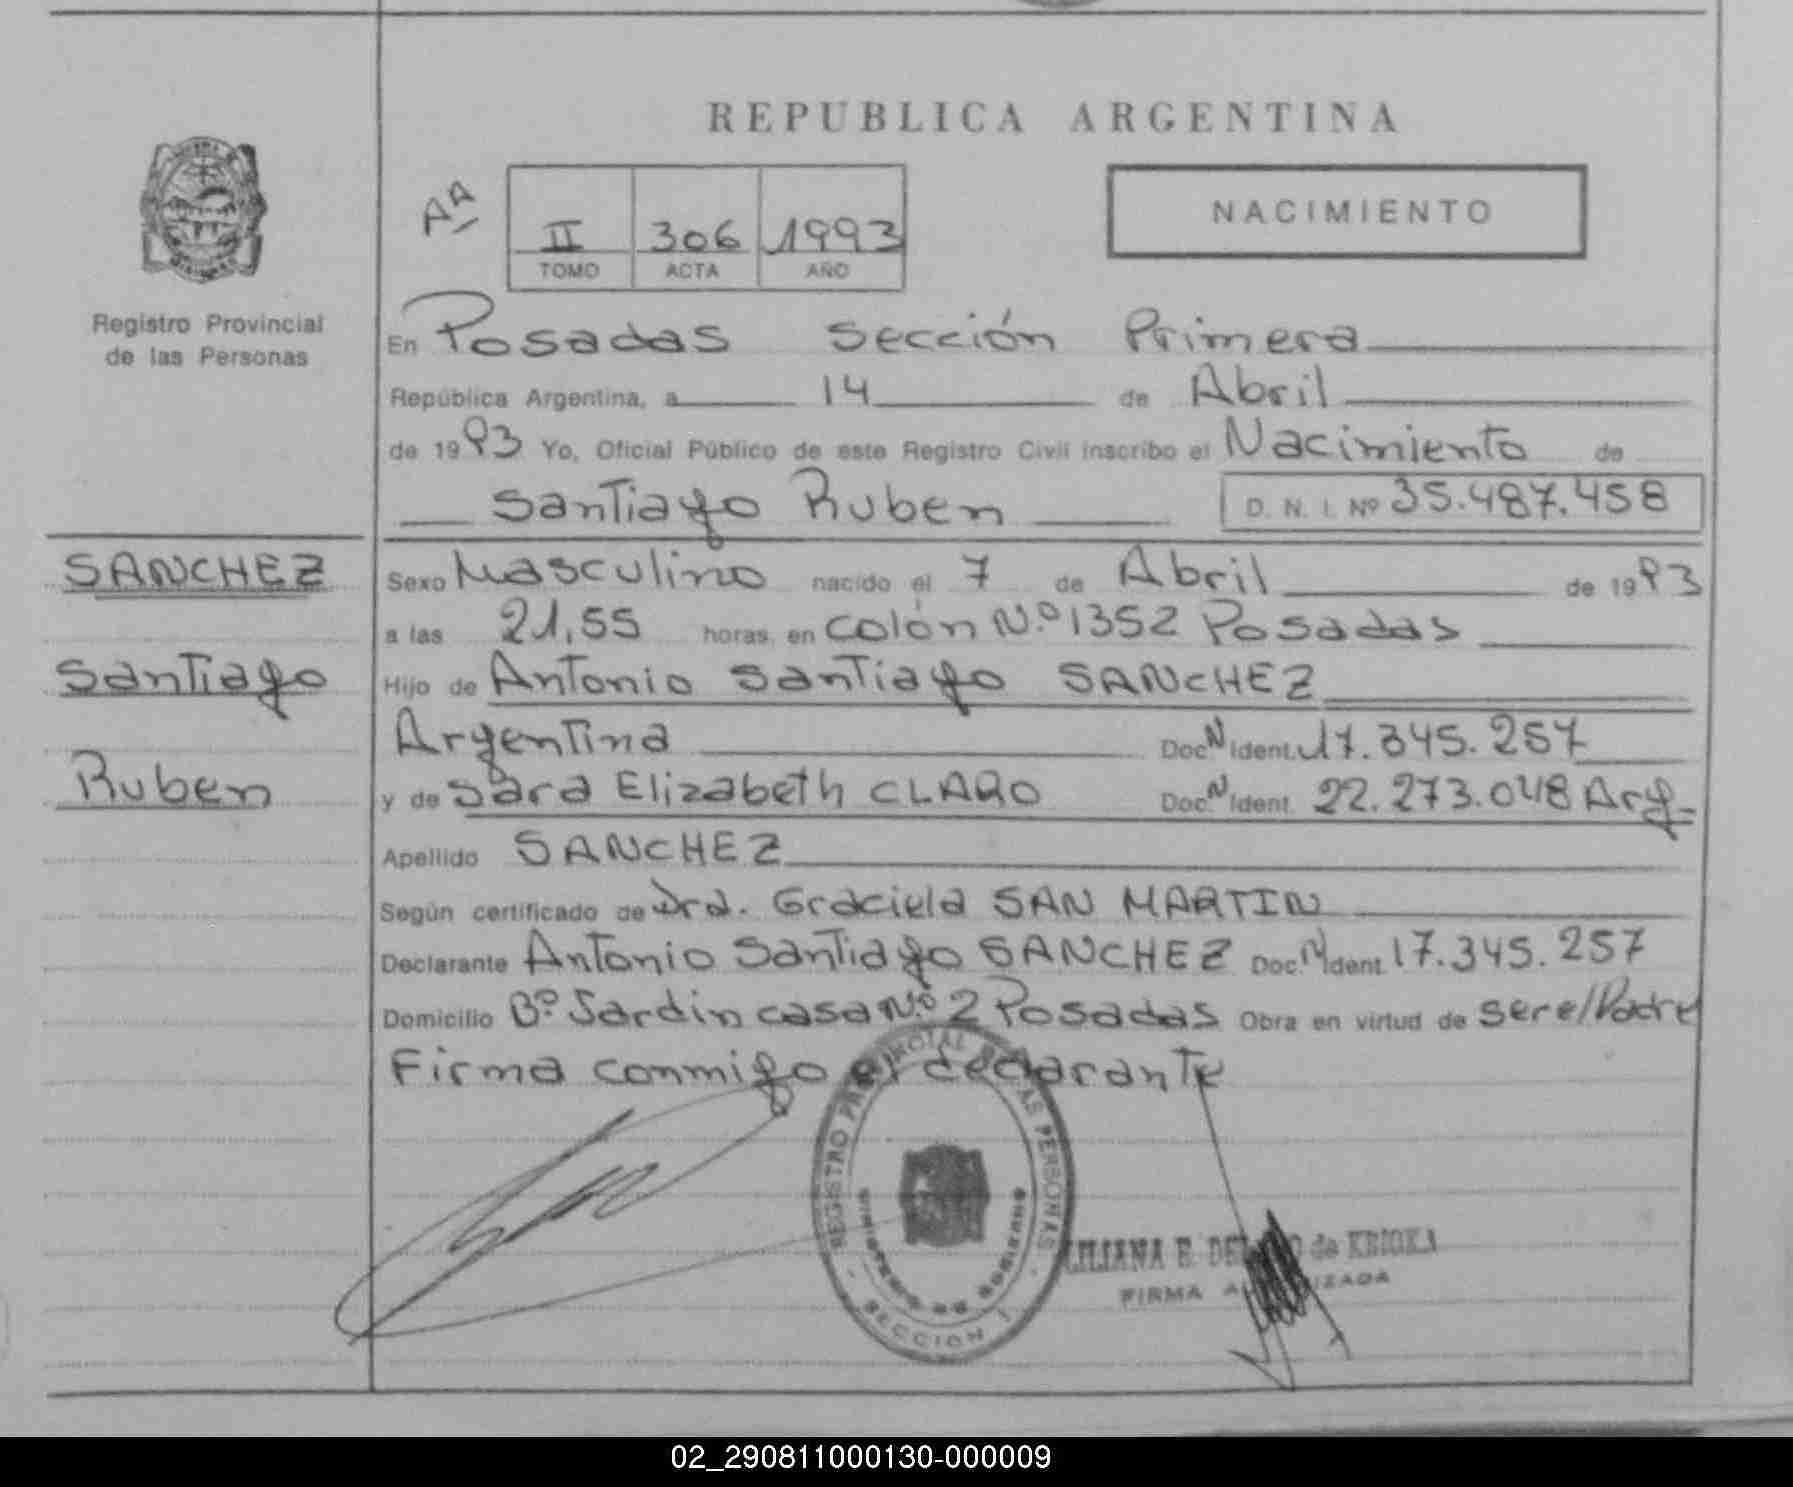 REPUBLICA ARGENTINA
Aª
II 306 1993
TOMO ACTA AÑO
NACIMIENTO
Registro Provincial
de las Personas
En Posadas Sección Primera
República Argentina, a 14 de Abril
de 1993 Yo, Oficial Público de este Registro Civil inscribo el Nacimiento de
Santiago Ruben D. N. I. Nº 35.487.458
SANCHEZ
Santiago
Ruben
Sexo Masculino nacido el 7 de Abril de 1993
a las 21,55 horas, en Colón N.º 1352 Posadas
Hijo de Antonio Santiago SANCHEZ
Argentina Doc. N Ident. 17.345.257
y de Sara Elizabeth CLARO Doc. N Ident. 22.273.048 Arg.
Apellido SANCHEZ
Según certificado de Dra. Graciela SAN MARTIN
Declarante Antonio Santiago SANCHEZ Doc. N Ident. 17.345.257
Domicilio Bº. Jardin casa N.º 2 Posadas Obra en virtud de ser el Padre
Firma conmigo el declarante
REGISTRO PROVINCIAL DE LAS PERSONAS
MINISTERIO DE GOBIERNO
SECCION 1
LILIANA E. de KRIOKA
FIRMA AUTORIZADA
02_290811000130-000009